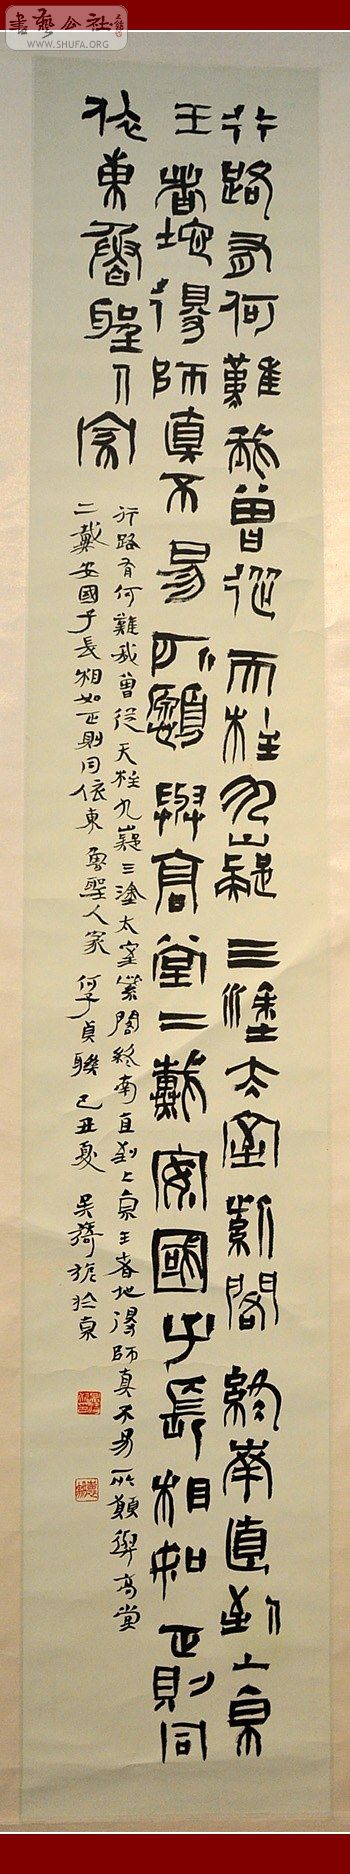 書藝公社
WWW.SHUFA.ORG
行路有何難我曾從天柱九嶷三塗太室紫閣終南直到上京
王者地得師真不易所願與高堂二戴安國子長相如正則同
依東魯聖人家
行路有何難我曾從天柱九嶷三塗太室紫閣終南直到上京王者地得師真不易所願與高堂
二戴安國子長相如正則同依東魯聖人家 何子貞聯 己丑夏 吳 旅於京